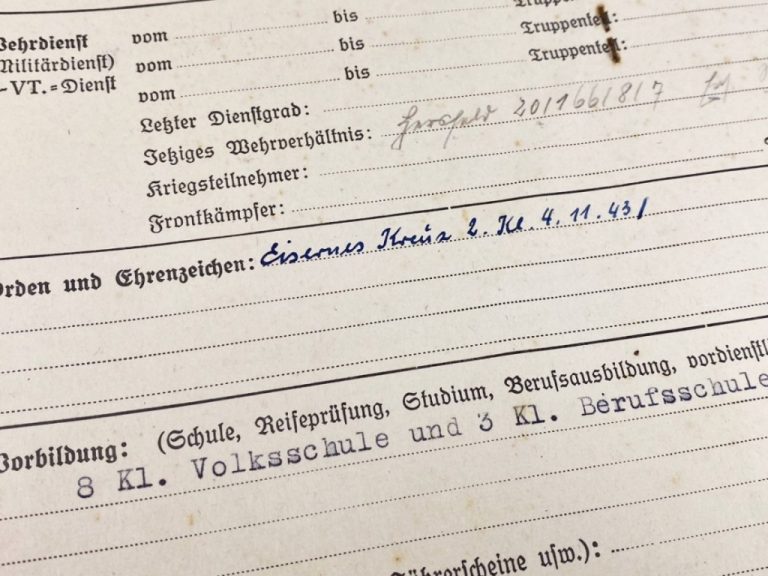 Wehrdienst vom bis Truppenteil:
(Militärdienst) vom bis Truppenteil:
-VT.=Dienst vom bis
Letzter Dienstgrad:
Jetziges Wehrverhältnis: Hersfeld 20/166/8/7
Kriegsteilnehmer:
Frontkämpfer:
Orden und Ehrenzeichen: Eisernes Kreuz 2. Kl. 4.11.43/
Vorbildung: (Schule, Reifeprüfung, Studium, Berufsausbildung, vordienstl
8 Kl. Volksschule und 3 Kl. Berufsschule
Führerscheine usw.):